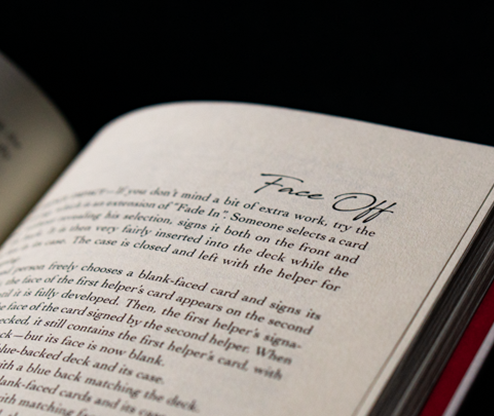 Face Off
If you don't mind a bit of extra work, try the
which is an extension of "Fade In". Someone selects a card
revealing his selection, signs it both on the front and
It is then very fairly inserted into the deck while the
in its case. The case is closed and left with the helper for
person freely chooses a blank-faced card and signs its
the face of the first helper's card appears on the second
until it is fully developed. Then, the first helper's signa-
face of the card signed by the second helper. When
checked, it still contains the first helper's card, with
ck—but its face is now blank.
blue-backed deck and its case.
with a blue back matching the deck.
blank-faced cards and its case
with matching